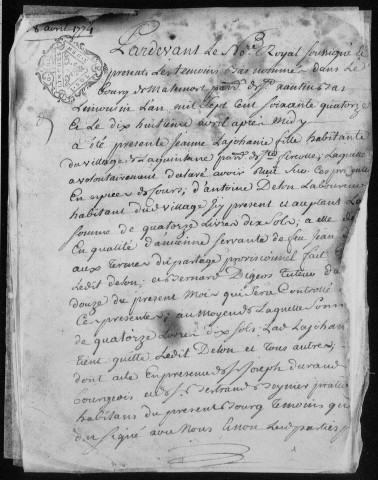 8 avril 1774
Pardevant Le No.re Royal soussigné et
presents Les temoins bas nommés dans Le
bourg de malemort par.se de St xantin bas
Limousin Lan mil sept cent soixante quatorze
Et Le dix huitieme avril apres midy
a été presente jeanne Lajohanie fille habitante
du village de Laquintane par.se de Laquelle
a volontairement declaré avoir Reçu
En espece de jours, d'antoine Delon Laboureur
habitant du village Jcy present et aceptant La
somme de quatorze Livres dix sols, a elle
En qualité d'ancienne servante de feu Jean
aux termes du partage provisionnel fait
Ledit delon, et bernard tuteur
douze du present mois qui sera Controllé
Ces presentes, au moyen de Laquelle somme
de quatorze Livres dix sols Lad Lajohanie
tient quitte Ledit Delon et tous autres,
dont acte En presence de Sr joseph durand
bourgeois et de Sr bertrand praticien
habitans du present bourg temoins qui
ont signé avec Nous Et non Les parties